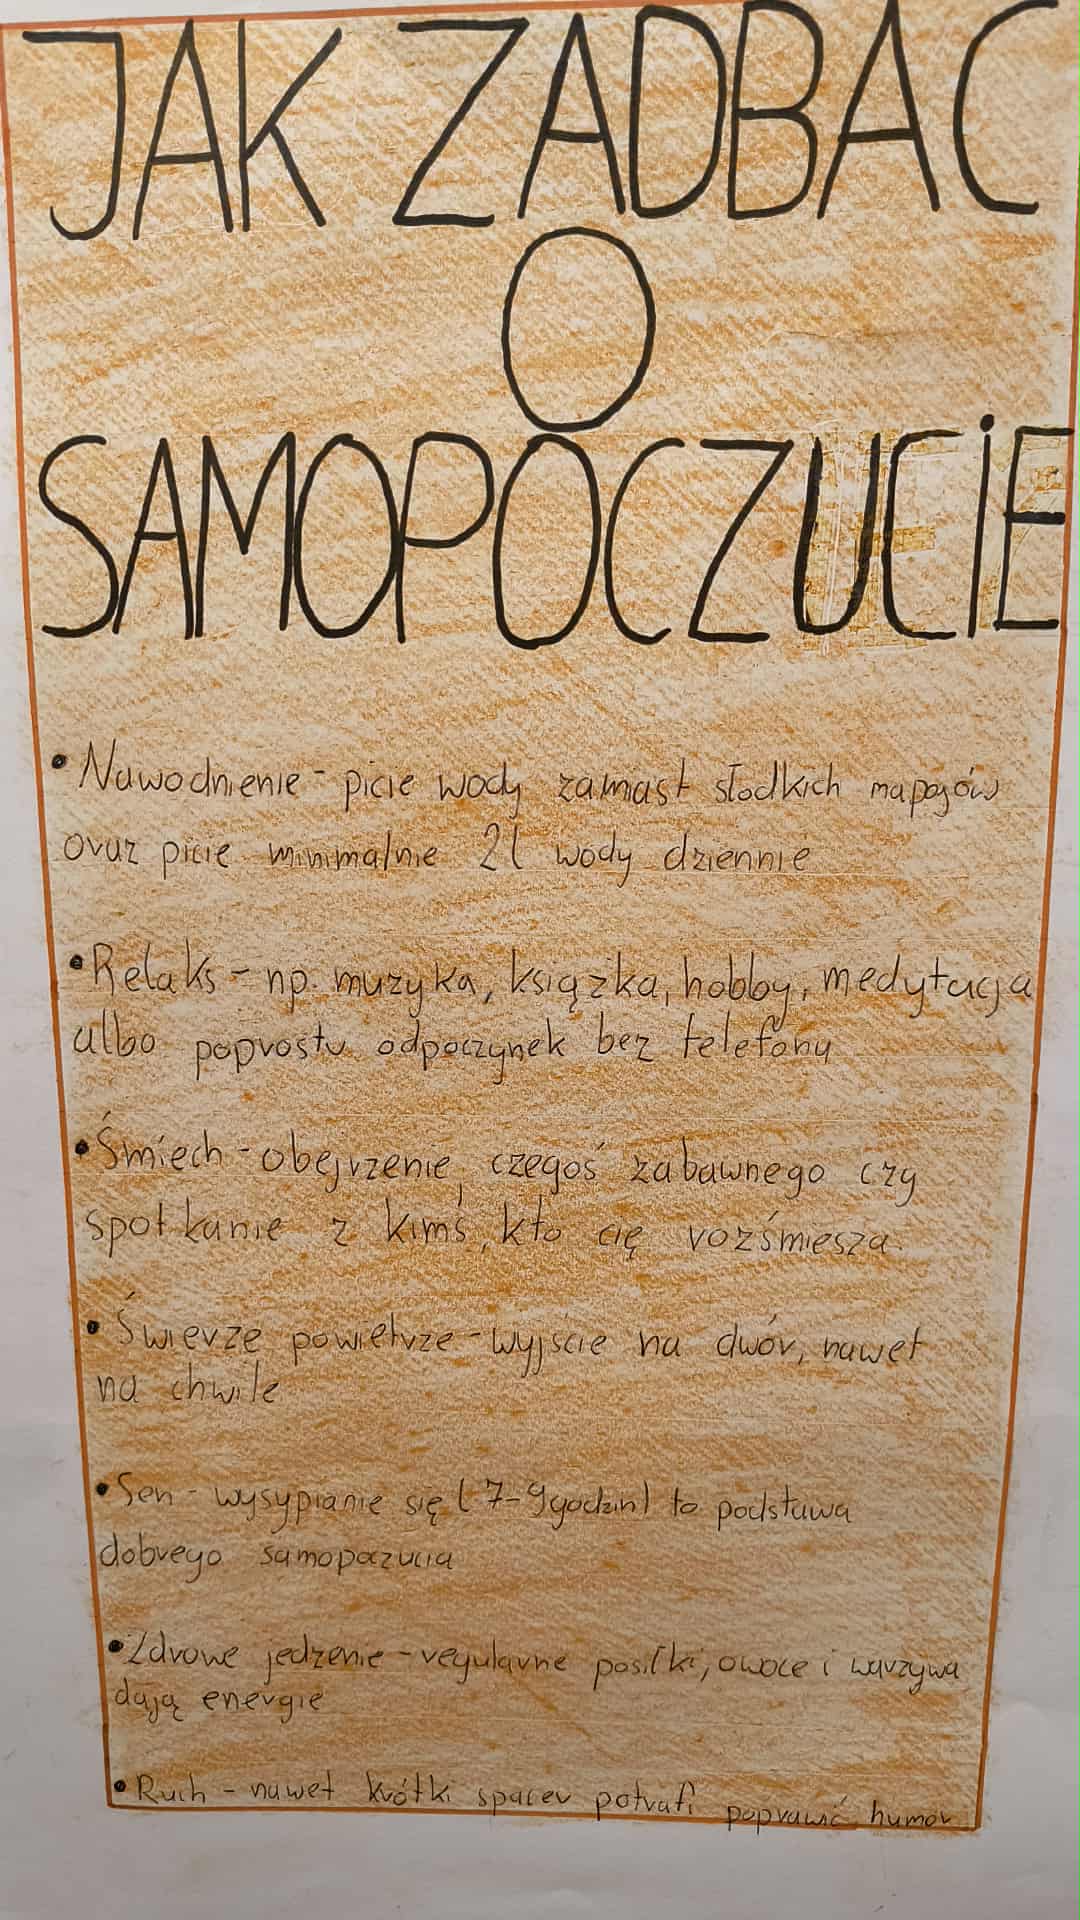 JAK ZADBAC
O
SAMOPOCZUCiE
• Nawodnienie - picie wody zamiast słodkich napojów
oraz picie minimalnie 2l wody dziennie
• Relaks - np. muzyka, książka, hobby, medytacja
albo poprostu odpoczynek bez telefonu
• Śmiech - obejrzenie czegoś zabawnego czy
spotkanie z kimś, kto cię rozśmiesza.
• Świerze powietrze - wyjście na dwór, nawet
na chwile
• Sen - wysypianie się (7-9godzin) to podstawa
dobrego samopoczucia
• Zdrowe jedzenie - regularne posiłki, owoce i warzywa
dają energie
• Ruch - nawet krótki spacer potrafi poprawić humor